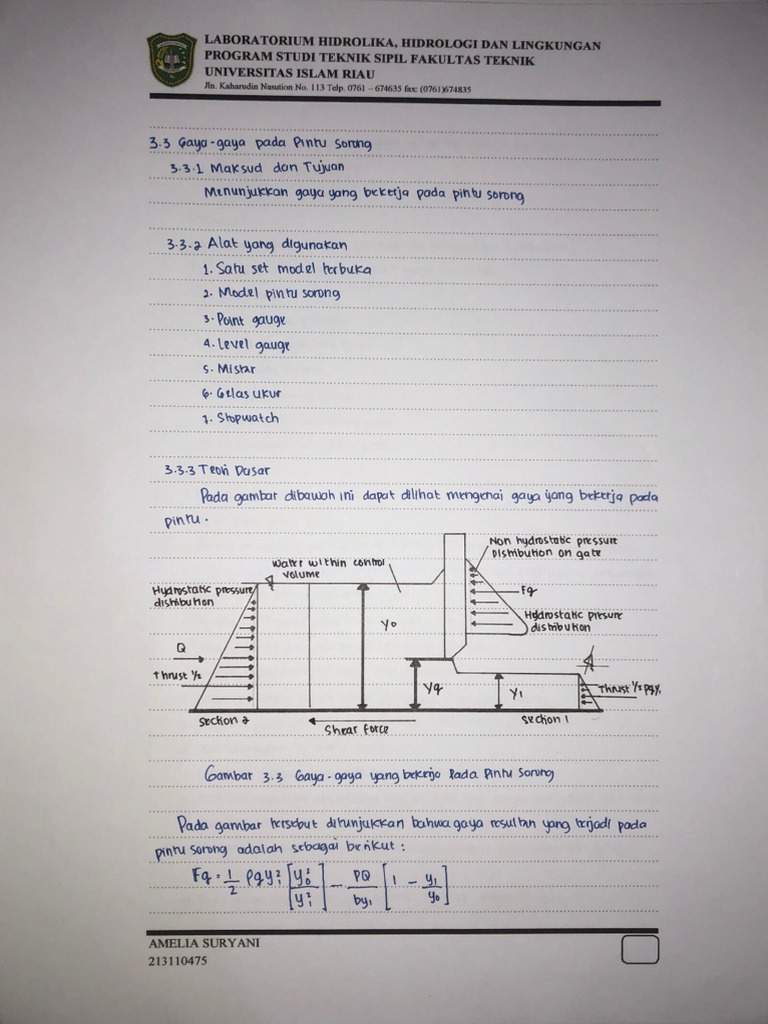 LABORATORIUM HIDROLIKA, HIDROLOGI DAN LINGKUNGAN
PROGRAM STUDI TEKNIK SIPIL FAKULTAS TEKNIK
UNIVERSITAS ISLAM RIAU
Jln. Kaharudin Nasution No. 113 Telp. 0761 – 674635 fax: (0761)674835
3.3 Gaya-gaya pada Pintu Sorong
3.3.1 Maksud dan Tujuan
Menunjukkan gaya yang bekerja pada pintu sorong
3.3.2 Alat yang digunakan
1. Satu set model terbuka
2. Model pintu sorong
3. Point gauge
4. Level gauge
5. Mistar
6. Gelas ukur
7. Stopwatch
3.3.3 Teori Dasar
Pada gambar dibawah ini dapat dilihat mengenai gaya yang bekerja pada
pintu.
Non hydrostatic pressure
Distribution on gate
Water within control
volume
Hydrostatic pressure
distribution
Fg
Hydrostatic presure
distribution
Y0
Q
Thrust 1/2
Yg
Y1
Thrust 1/2 ρgy1
Section 2
Section 1
Shear Force
Gambar 3.3 Gaya-gaya yang bekerja Pada Pintu Sorong
Pada gambar tersebut ditunjukkan bahwa gaya resultan yang terjadi pada
pintu sorong adalah sebagai berikut :
Fg = 1/2 ρgy₁² [y₀²/y₁²] - ρQ/by₁ [1 - y₁/y₀]
AMELIA SURYANI
213110475